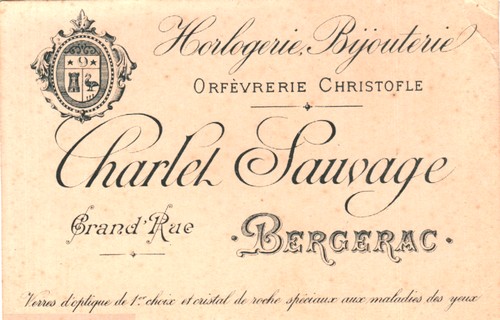 Horlogerie, Bijouterie
ORFÈVRERIE CHRISTOFLE
9
Charlet Sauvage
Grand'Rue
·BERGERAC·
Verres d'optique de 1er choix et cristal de roche spéciaux aux maladies des yeux